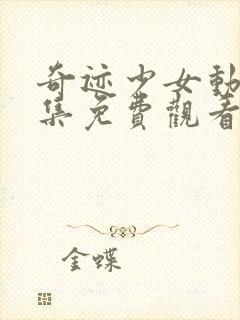 奇迹少女動
集免費觀看
金蝶